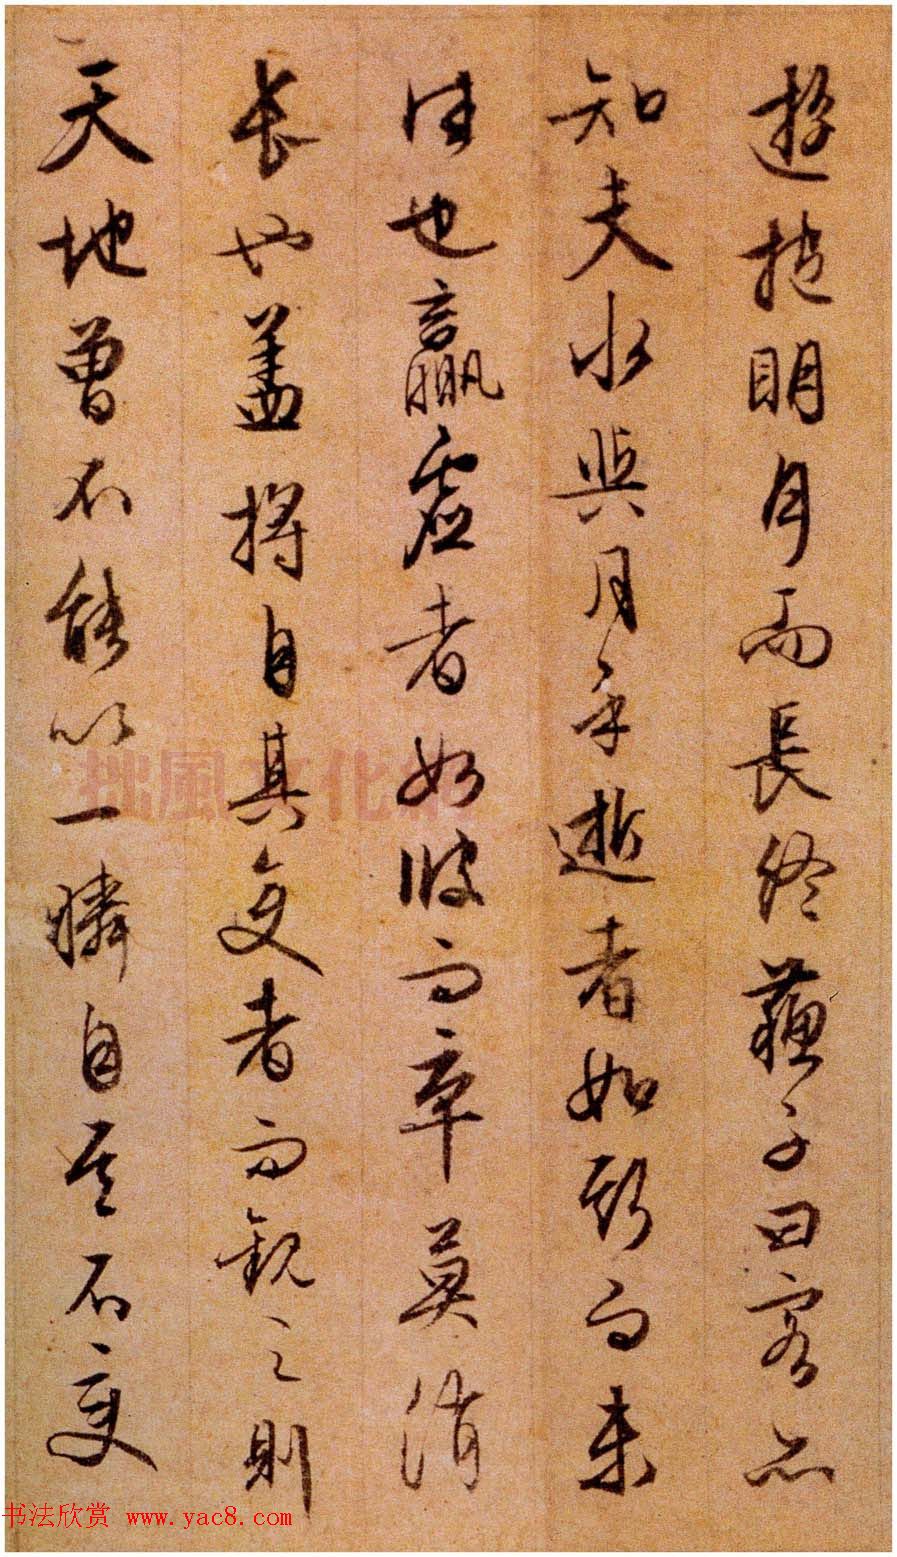 遊抱明月而長終蘇子曰客亦
知夫水與月乎逝者如斯而未
往也贏虛者如彼而卒莫消
長也蓋將自其變者而觀之則
天地曾不能以一瞬自其不變
拙風文化網
书法欣赏 www.yac8.com